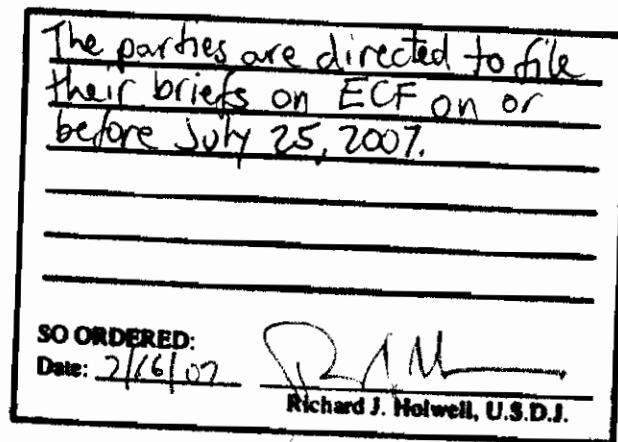 The parties are directed to file
their briefs on ECF on or
before July 25, 2007.
SO ORDERED:
Date: 7/16/07
Richard J. Holwell, U.S.D.J.